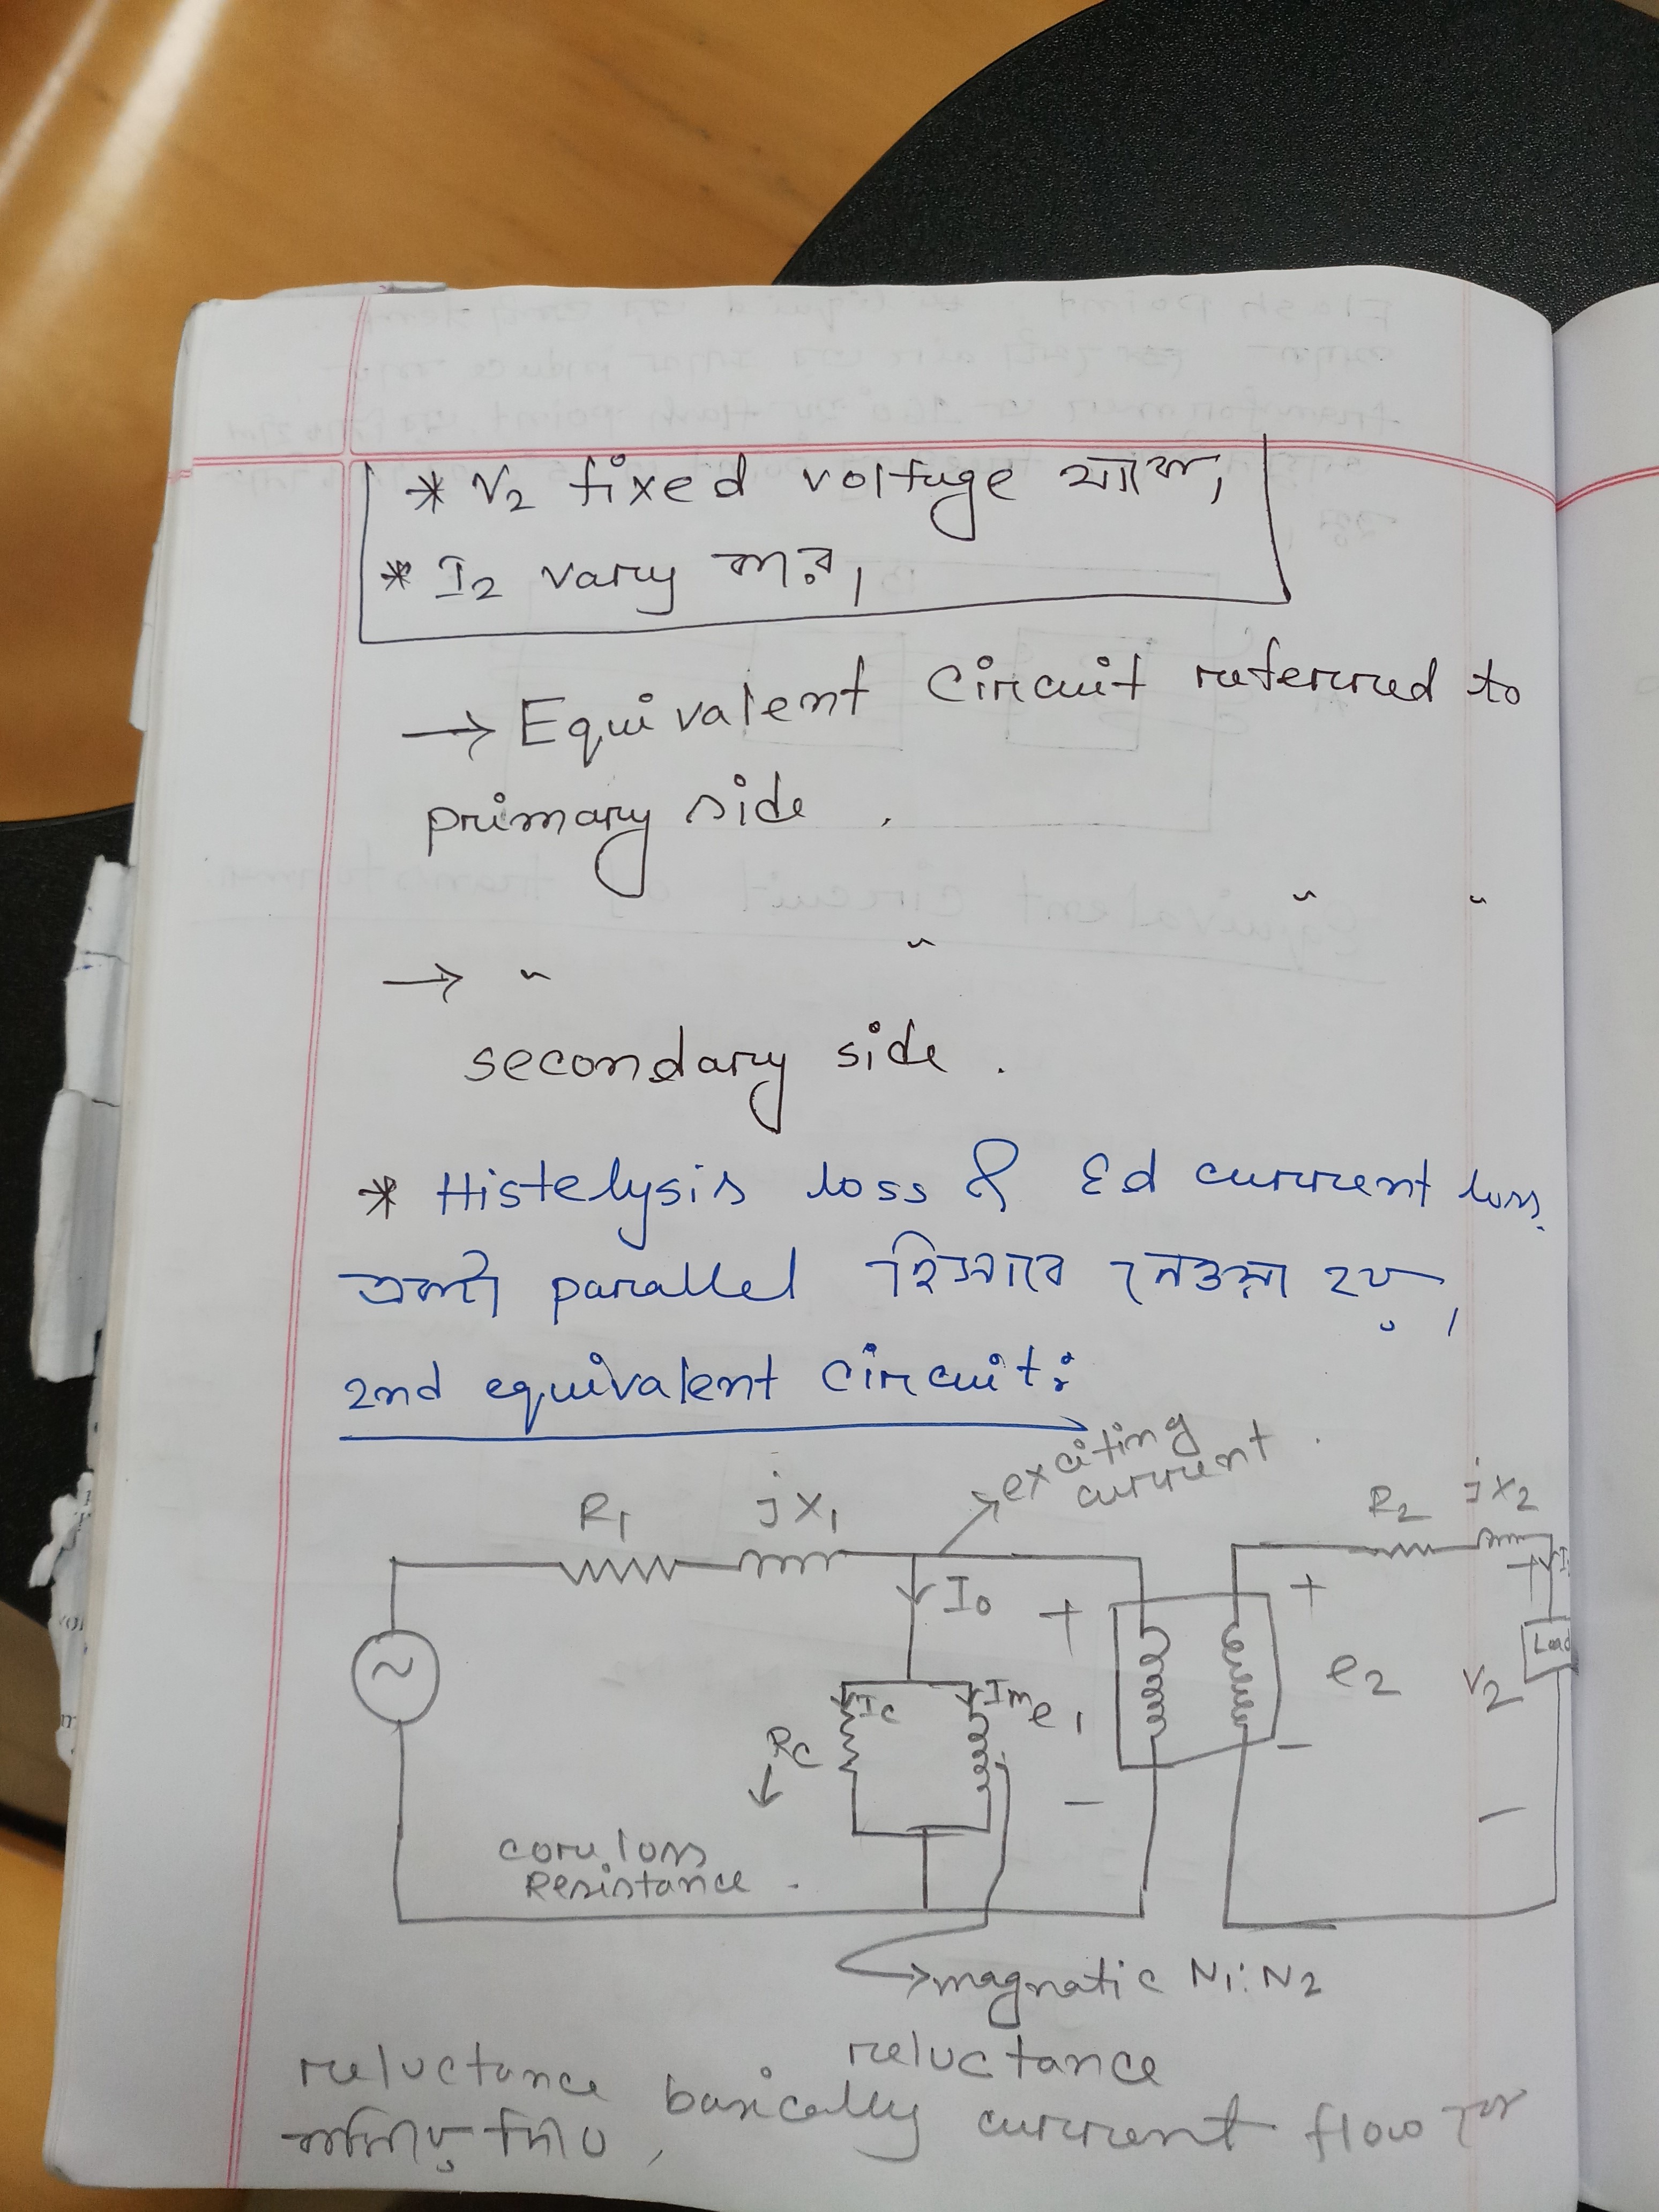 * V2 fixed voltage থাকে,
* I2 vary করে,
→ Equivalent Circuit referred to
primary side .
→ " " " "
secondary side .
* Histelysis loss & Ed current loss
একটা parallel হিসাবে নেওয়া হয়,
2nd equivalent circuit:
exciting
current
R1 jX1 R2 jX2
I0
+ +
Ic Im e1 e2 V2 Load
Rc
- - -
core loss
Resistance .
magnatic N1:N2
reluctance
reluctance basically current flow কে
কমিয়ে দিত,